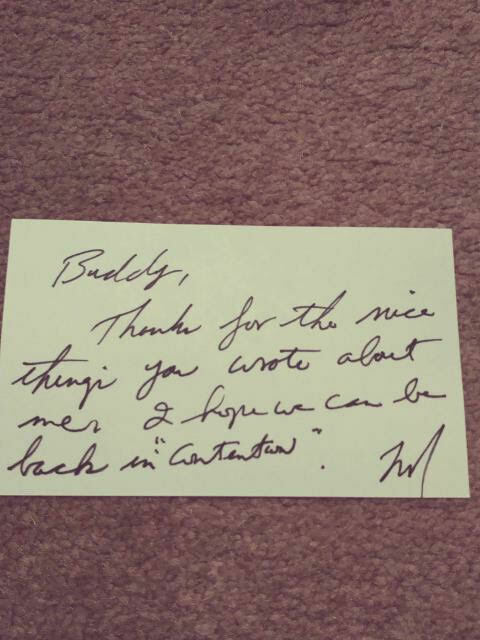 Buddy,
Thanks for the nice
things you wrote about
me. I hope we can be
back in "Contention".